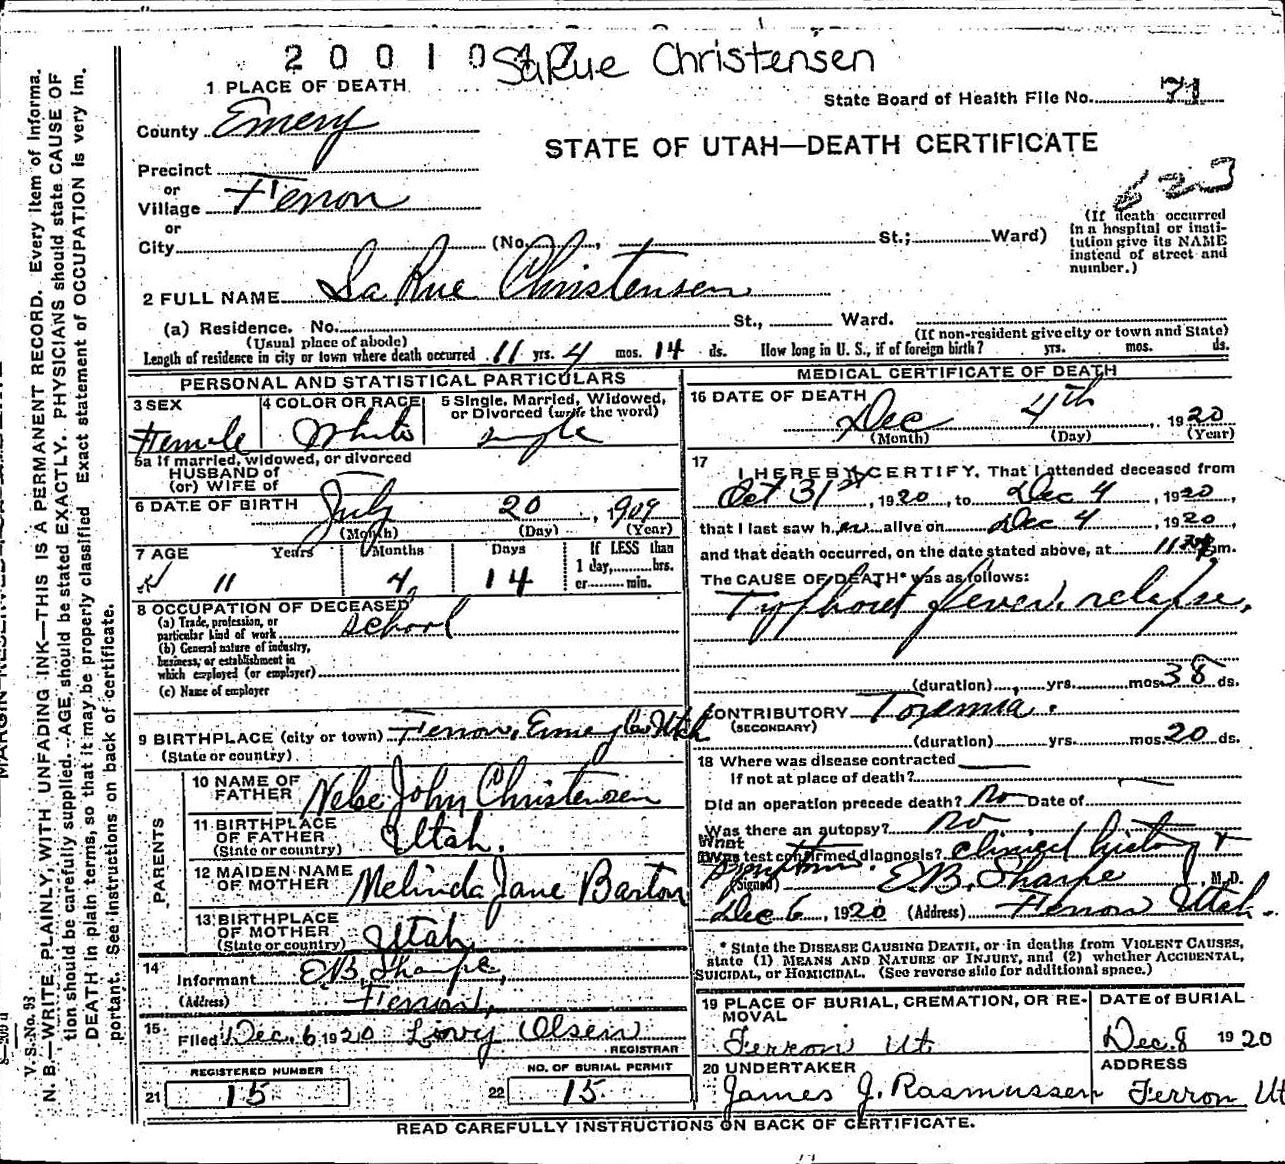 2 0 0 1 0 4
SaRue Christensen
1 PLACE OF DEATH
State Board of Health File No. 71
County Emery
STATE OF UTAH—DEATH CERTIFICATE
Precinct
or
Village Ferron
623
or
City (No. , St.; Ward)
(If death occurred
in a hospital or insti-
tution give its NAME
instead of street and
number.)
2 FULL NAME La Rue Christensen
(a) Residence. No. St., Ward.
(Usual place of abode) (If non-resident give city or town and State)
Length of residence in city or town where death occurred 11 yrs. 4 mos. 14 ds. How long in U. S., if of foreign birth? yrs. mos. ds.
PERSONAL AND STATISTICAL PARTICULARS
3 SEX
Female
4 COLOR OR RACE
White
5 Single, Married, Widowed,
or Divorced (write the word)
single
5a If married, widowed, or divorced
HUSBAND OF
(or) WIFE OF
6 DATE OF BIRTH July 20, 1909
(Month) (Day) (Year)
7 AGE Years Months Days
If LESS than
1 day, hrs.
or min.
11 4 14
8 OCCUPATION OF DECEASED
(a) Trade, profession, or
particular kind of work School
(b) General nature of industry,
business, or establishment in
which employed (or employer)
(c) Name of employer
9 BIRTHPLACE (city or town) Ferron, Emery Co Utah
(State or country)
PARENTS
10 NAME OF
FATHER Nelse John Christensen
11 BIRTHPLACE
OF FATHER Utah.
(State or country)
12 MAIDEN NAME
OF MOTHER Melinda Jane Barton
13 BIRTHPLACE
OF MOTHER Utah
(State or country)
14
Informant E.B. Sharpe,
(Address) Ferron,
15
Filed Dec. 6 1920 Livvy Olsen
REGISTRAR
REGISTERED NUMBER
21 15
NO. OF BURIAL PERMIT
22 15
MEDICAL CERTIFICATE OF DEATH
16 DATE OF DEATH
Dec 4th, 1920
(Month) (Day) (Year)
17
I HEREBY CERTIFY. That I attended deceased from
Oct 31st, 1920, to Dec 4, 1920,
that I last saw her alive on Dec 4, 1920,
and that death occurred, on the date stated above, at m.
The CAUSE OF DEATH* was as follows:
Typhoid fever, relapse,
(duration) yrs. mos. 38 ds.
CONTRIBUTORY Toxemia.
(SECONDARY)
(duration) yrs. mos. 20 ds.
18 Where was disease contracted
If not at place of death?
Did an operation precede death? No Date of
Was there an autopsy? No
What
test confirmed diagnosis? Clinical history +
Symptoms.
(Signed) E.B. Sharpe, M.D.
Dec 6, 1920 (Address) Ferron Utah.
* State the DISEASE CAUSING DEATH, or in deaths from VIOLENT CAUSES,
state (1) MEANS AND NATURE OF INJURY, and (2) whether ACCIDENTAL,
SUICIDAL, or HOMICIDAL. (See reverse side for additional space.)
19 PLACE OF BURIAL, CREMATION, OR RE-
MOVAL
Ferron Ut.
DATE of BURIAL
Dec. 8 1920
20 UNDERTAKER
James J. Rasmussen
ADDRESS
Ferron Ut
READ CAREFULLY INSTRUCTIONS ON BACK OF CERTIFICATE.
V. S. No. 93
N. B.—WRITE PLAINLY, WITH UNFADING INK—THIS IS A PERMANENT RECORD. Every item of informa-
tion should be carefully supplied. AGE should be stated EXACTLY. PHYSICIANS should state CAUSE OF
DEATH in plain terms, so that it may be properly classified. Exact statement of OCCUPATION is very im-
portant. See instructions on back of certificate.